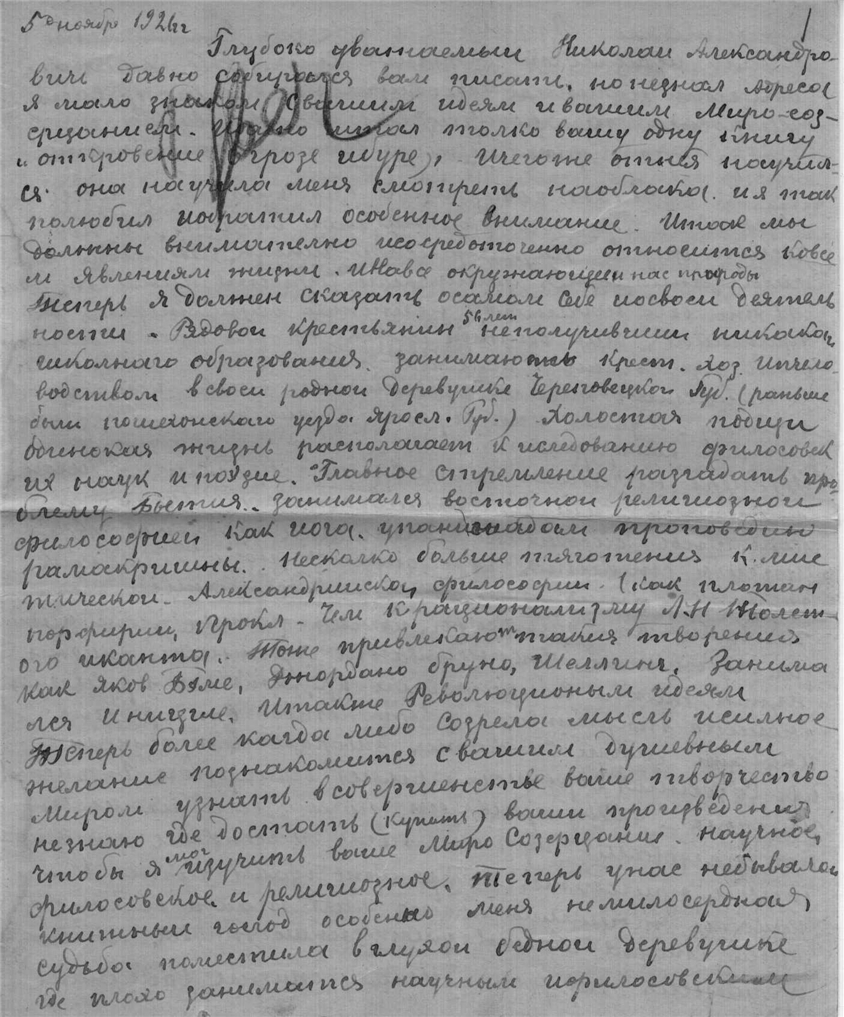 5го ноября 1926 г
1
Глубоко уважаемыи Николаи Александро-
вич давно собирался вам писать, но незнал адреса
я мало знаком свашими идеям ивашим Миро-соз-
ерцанием. читал толко вашу одну книгу
"откровение огрозе ибуре", ичегоже отнея научил-
ся. она научила меня смотреть наоблака. ия так
полюбил иобратил особенное внимание. Итак мы
должны внимателно исосредоточенно относится ковсе
м явлениям жизни. инавсе окружающеи нас природы
Теперь я должен сказать осамом себе иосвоеи деятель
ности. Рядовои крестьянин 56 лет неполучившии никаког
школнаго образования. занимаюсь крест. хоз. ипчело-
водством всвоеи роднои деревушке Череповецкои Губ. (раньше
были пошехонскаго уезда яросл. Губ.) Холостая почти
одинокая жизнь располагает к иследованию философск
их наук ипоэзие. Главное стремление разгадать про-
блему Бытия. занимался восточнои религиознои
философиеи как иога. упанишадам проповедию
рамакришны. Несколко больше тяготения к мис
тическои Александрииской философии. (как плотин
порфирии, прокл - Чем крационализму Л.Н Толст-
ого иканта. Тоже привлекают такия творения
как Яков Бэме, джордано бруно, Шеллинг, Занима
лся иницше. Итакже Революционым идеям
Теперь более когда либо созрела мысль исилное
желание познакомится свашим душевным
Миром узнать всовершенстве ваше творчество
незнаю где достать (купить) ваши произведения
чтобы я мог изучить ваше Миро Созерцание. научное,
философское и религиозное. Теперь унас небывалои
книжныи голод особенно меня немилосердная
судьба поместила вглухои беднои деревушке
где плохо занимается научным ифилософским